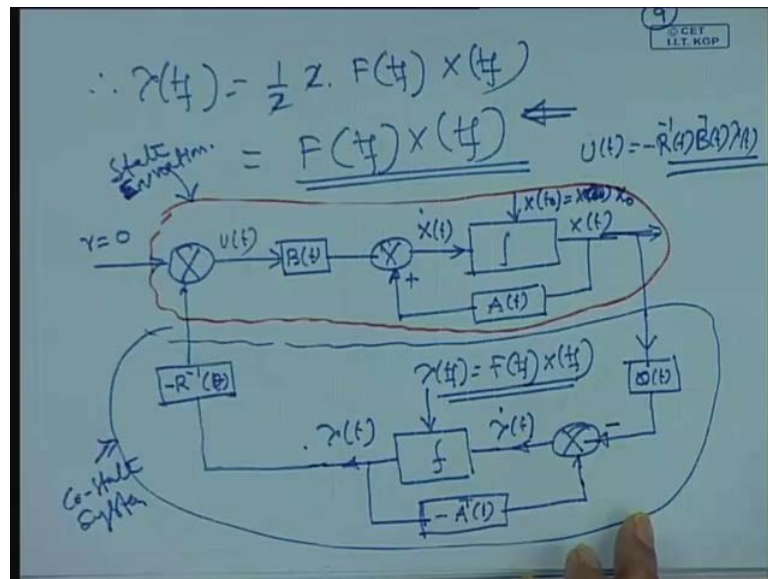 9
© CET
I.I.T. KGP
∴ λ(tf) = 1/2 2. F(tf) X(tf)
= F(tf) X(tf) ⇐
U(t) = -R⁻¹(t) B'(t) λ(t)
State
r=0
U(t)
B(t)
+
Ẋ(t)
∫
X(t₀) = X₀
X(t)
A(t)
-R⁻¹(t)
λ(tf) = F(tf) X(tf)
Q(t)
λ(t)
∫
λ̇(t)
-
-A'(t)
Co-state
System